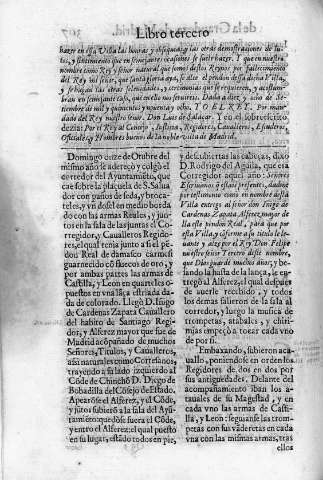 Libro tercero
hazer en essa Villa las honras y obsequias, y las otras demostraciones de lu-
tos, y sentimiento que en semejantes ocasiones se suele hazer. Y que en nuestro
nombre como Rey y señor natural que somos destos Reynos por fallecimiento
del Rey mi señor, que santa gloria aya, se alce el pendon de essa dicha Villa,
y se hagan las otras solenidades, y ceremonias que se requieren, y acostum-
bran en semejante caso, que en ello nos seruireis. Dada a diez y de
tiembre de mil y quinientos y nouenta y ocho. YO EL REY. Por man-
dado del Rey nuestro señor. Don Luis de Salaçar. Y en el sobrescrito
dezia: Por el Rey al Concejo, Iusticia, Regidores, Caualleros, Escuderos,
Oficiales, y Hombres buenos de la noble villa de Madrid.
Domingo onze de Otubre del
mismo año se adereçò y colgò el
corredor del Ayuntamiẽto, que
cae sobre la plaçuela de S. Salua
dor con paños de seda, y broca-
teles, y vn dosel en medio borda
do con las armas Reales, y jun-
tos en la sala de las juntas el Co-
rregidor, y Caualleros Regido-
res, el qual tenia junto a si el pẽ-
don Real de damasco carmesi
guarnecido cõ fluecos de oro, y
por ambas partes las armas de
Castilla, y Leon en quarteles o-
puestos en vna lãça estriada da-
da de colorado. Llegò D. Iñigo
de Cardenas Zapata Cauallero
del habito de Santiago Regi-
dor, y Alferez mayor que fue de
Madrid acõpañado de muchos
Señores, Titulos, y Caualleros,
assi naturales como Cortesanos,
trayendo a su lado izquierdo al
Cõde de Chinchõ D. Diego de
Bobadilla del Cõsejo de Estado.
Apearõse el Alferez, y el Cõde,
y jũtos subierõ a la sala del Ayũ-
tamiẽto; quedòse fuera el Cõde,
y entrò el Alferez: el qual puesto
en su lugar, estãdo todos en pie,
y descubiertas las cabeças, dixo
D. Rodrigo del Aguila, que era
Corregidor aquel año: Señores
Escriuanos q̃ estais presentes, dadme
por testimonio como en nombre de esta
Villa entrego al señor don Iñigo de
Cardenas Zapata Alferez mayor de
lla este pendon Real, para que por
esta Villa, y siruiendo a su titulo le le-
uante y alze por el Rey Don Felipe
nuestro señor Tercero deste nombre,
que Dios guarde muchos años; y be-
sando la hasta de la lança, le en-
tregò al Alferez; el qual despues
de auerle recibido, y todos
los demas salieron de la sala al
corredor, y luego la musica de
trompetas, atabales, y chiri-
mias empeçò a tocar cada vno
de por si.
Embaxando, subieron a ca-
uallo, poniendose en orden los
Regidores de dos en dos por
sus antiguedades. Delante del
acompañamiento iban los a-
tauales de su Magestad, y en
cada vno las armas de Casti-
lla, y Leon: seguianse las trom-
petas con sus vãderetas en cada
vna con las mismas armas, tras
ellos